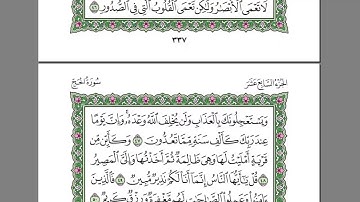 لَا تَعْمَى الْأَبْصَٰرُ وَلَٰكِن تَعْمَى الْقُلُوبُ الَّتِي فِي الصُّدُورِ ٤٦
٣٣٧
الجزء السابع عشر سورة الحج
وَيَسْتَعْجِلُونَكَ بِالْعَذَابِ وَلَن يُخْلِفَ اللَّهُ وَعْدَهُ ۚ وَإِنَّ يَوْمًا
عِندَ رَبِّكَ كَأَلْفِ سَنَةٍ مِّمَّا تَعُدُّونَ ٤٧ وَكَأَيِّن مِّن
قَرْيَةٍ أَمْلَيْتُ لَهَا وَهِيَ ظَالِمَةٌ ثُمَّ أَخَذْتُهَا وَإِلَيَّ الْمَصِيرُ
٤٨ قُلْ يَٰٓأَيُّهَا النَّاسُ إِنَّمَآ أَنَا۠ لَكُمْ نَذِيرٌ مُّبِينٌ ٤٩ فَالَّذِينَ
ءَامَنُوا وَعَمِلُوا الصَّٰلِحَٰتِ لَهُم مَّغْفِرَةٌ وَرِزْقٌ كَرِيمٌ ٥٠